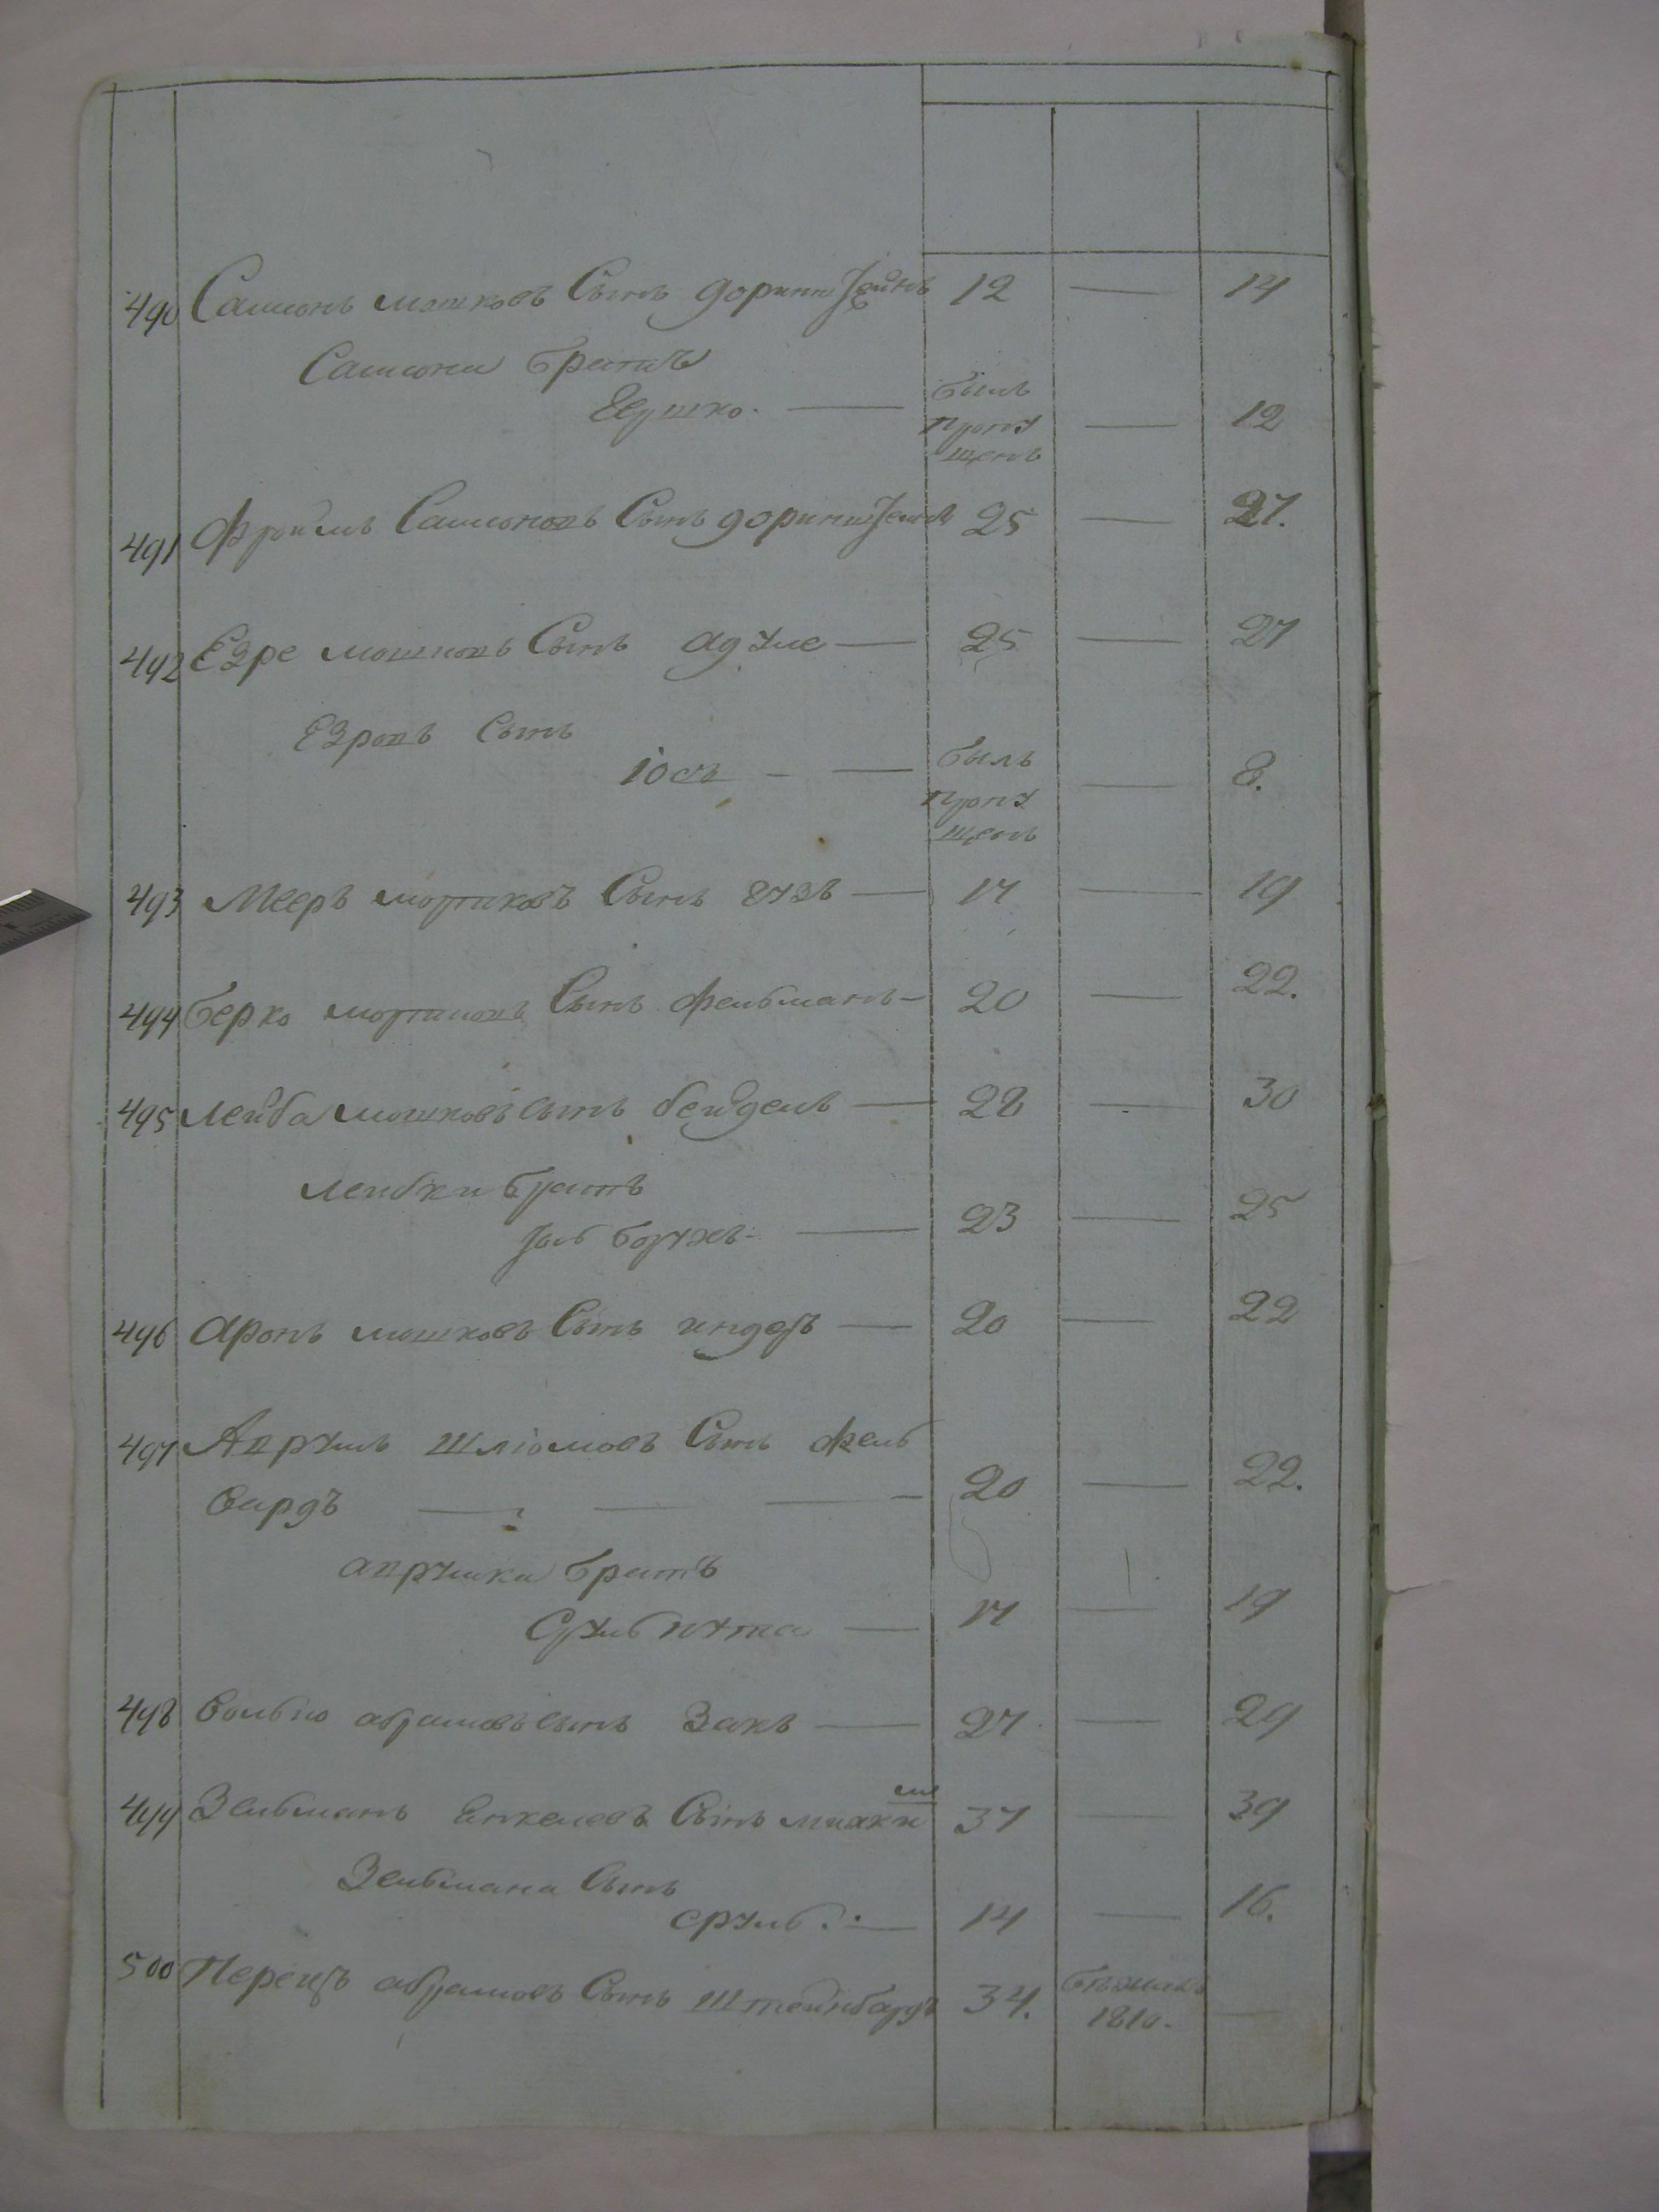 490 Самсонъ мошковъ Сынъ 12 — 14
Самсона братъ
Гершко. — былъ пропу щенъ — 12
491 Фроимъ Самсоновъ Сынъ 25 — 27.
492 Езре мошковъ Сынъ — 25 — 27
Езровъ Сынъ
Іосъ — — былъ пропу щенъ — 8.
493 Мееръ мортковъ Сынъ — 17 — 19
494 Берко мортковъ Сынъ фельманъ — 20 — 22.
495 Лейба мошковъ сынъ бейдель — 28 — 30
Лейбки братъ
— 23 — 25
496 Аронъ мошковъ Сынъ — 20 — 22
497 Аврумъ Шліомовъ Сынъ фель
вардъ — — — 20 — 22.
аврумка братъ
— 17 — 19
498 Волько абрамовъ сынъ Закъ — 27 — 29
499 Зельманъ Янкелевъ Сынъ 37 — 39
Зельмана Сынъ
сруль. — 14 — 16.
500 Перецъ абрамовъ Сынъ Штейнбардъ 34. бѣжалъ 1810. —